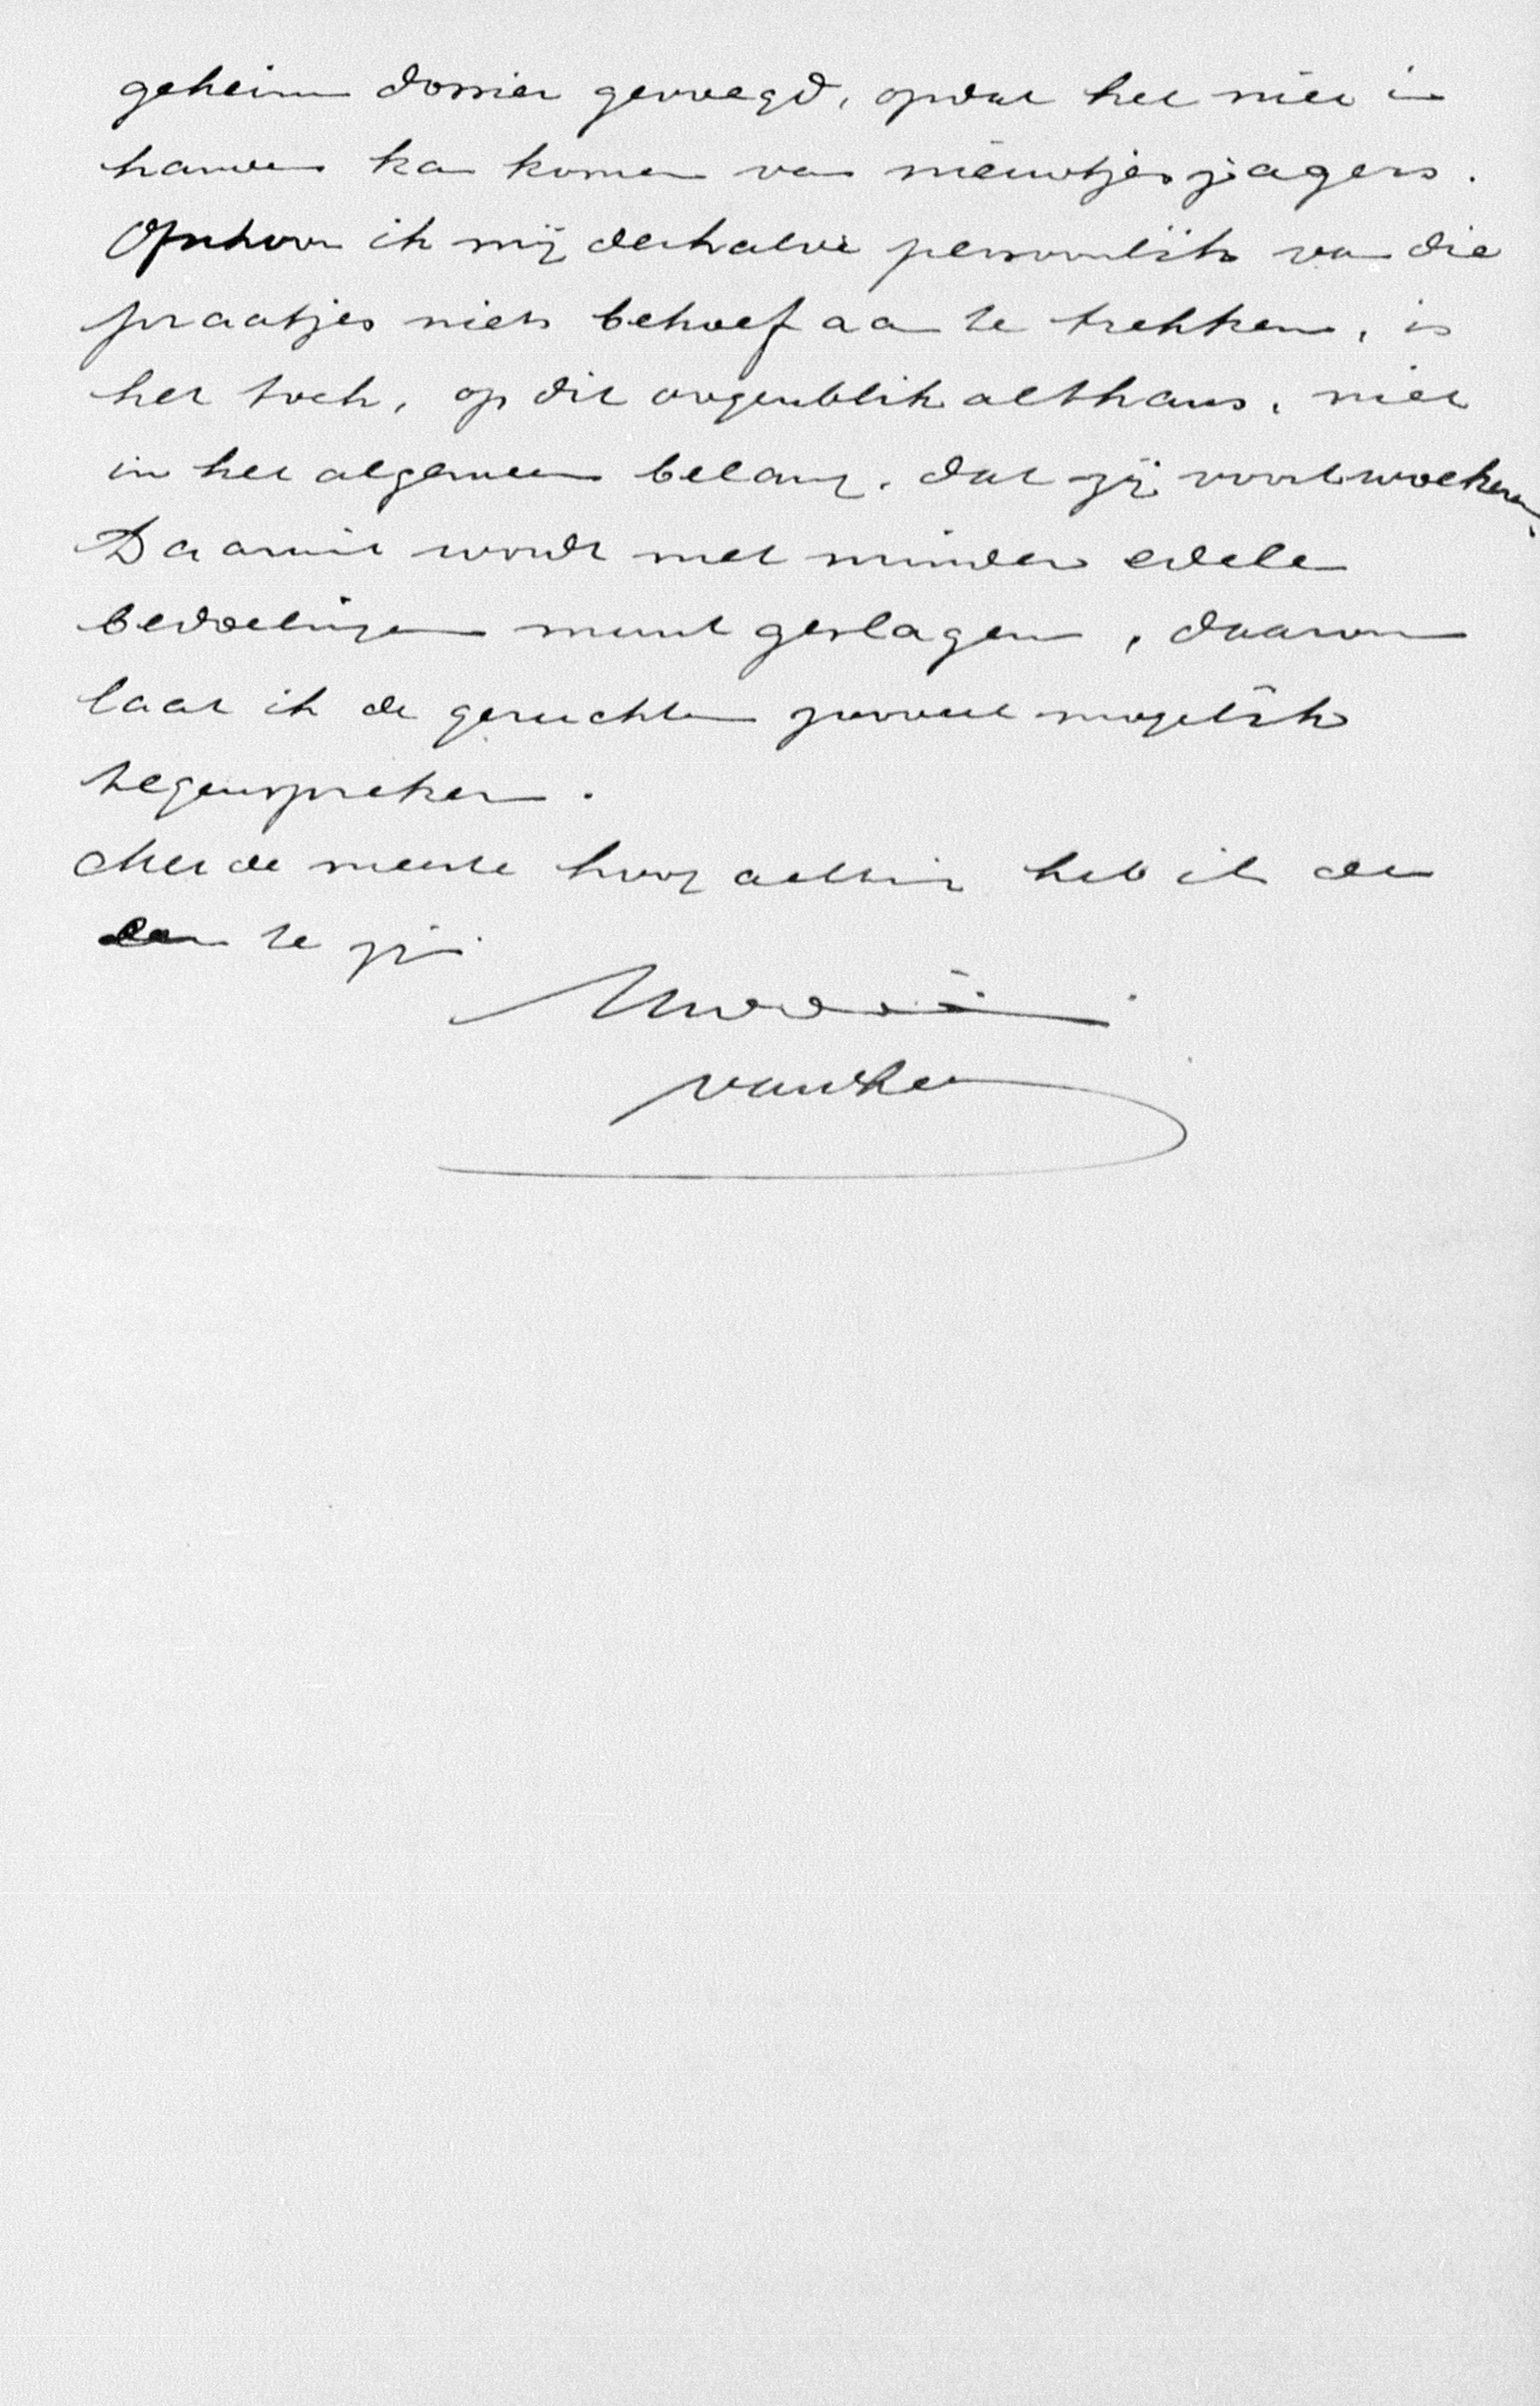 geheim dossier gevoegd, opdat het niet in
handen kan komen van nieuwtjesjagers.
Ofschoon ik mij derhalve persoonlijk van die
praatjes niets behoef aan te trekken, is
het toch, op dit oogenblik althans, niet
in het algemeen belang, dat zij voortwoekeren.
Daaruit wordt met minder edele
bedoelingen munt geslagen, daarom
laat ik de geruchten zooveel mogelijk
tegenspreken.
Met de meeste hoogachting heb ik de
eer te zijn